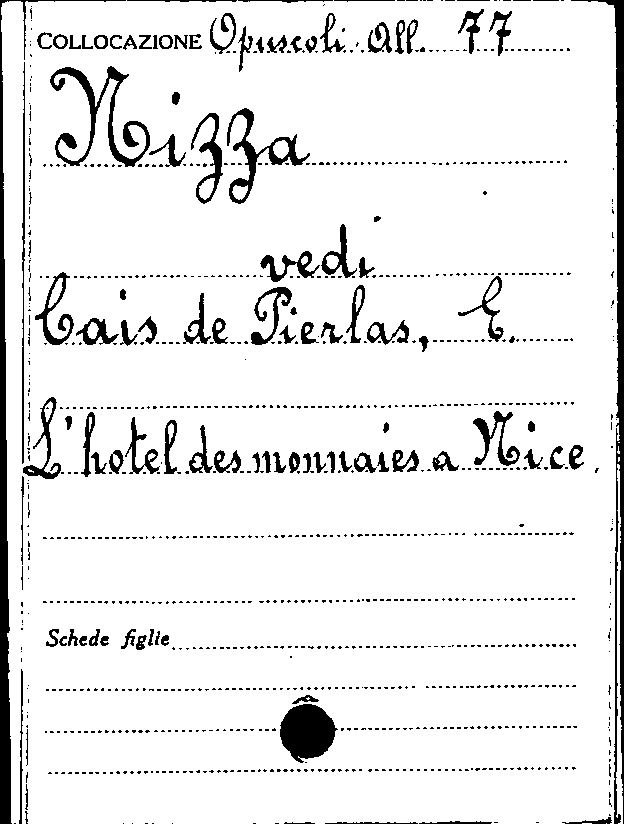 COLLOCAZIONE Opuscoli All. 77
Nizza
vedi
Cais de Pierlas, E.
L'hotel des monnaies a Nice.
Schede figlie